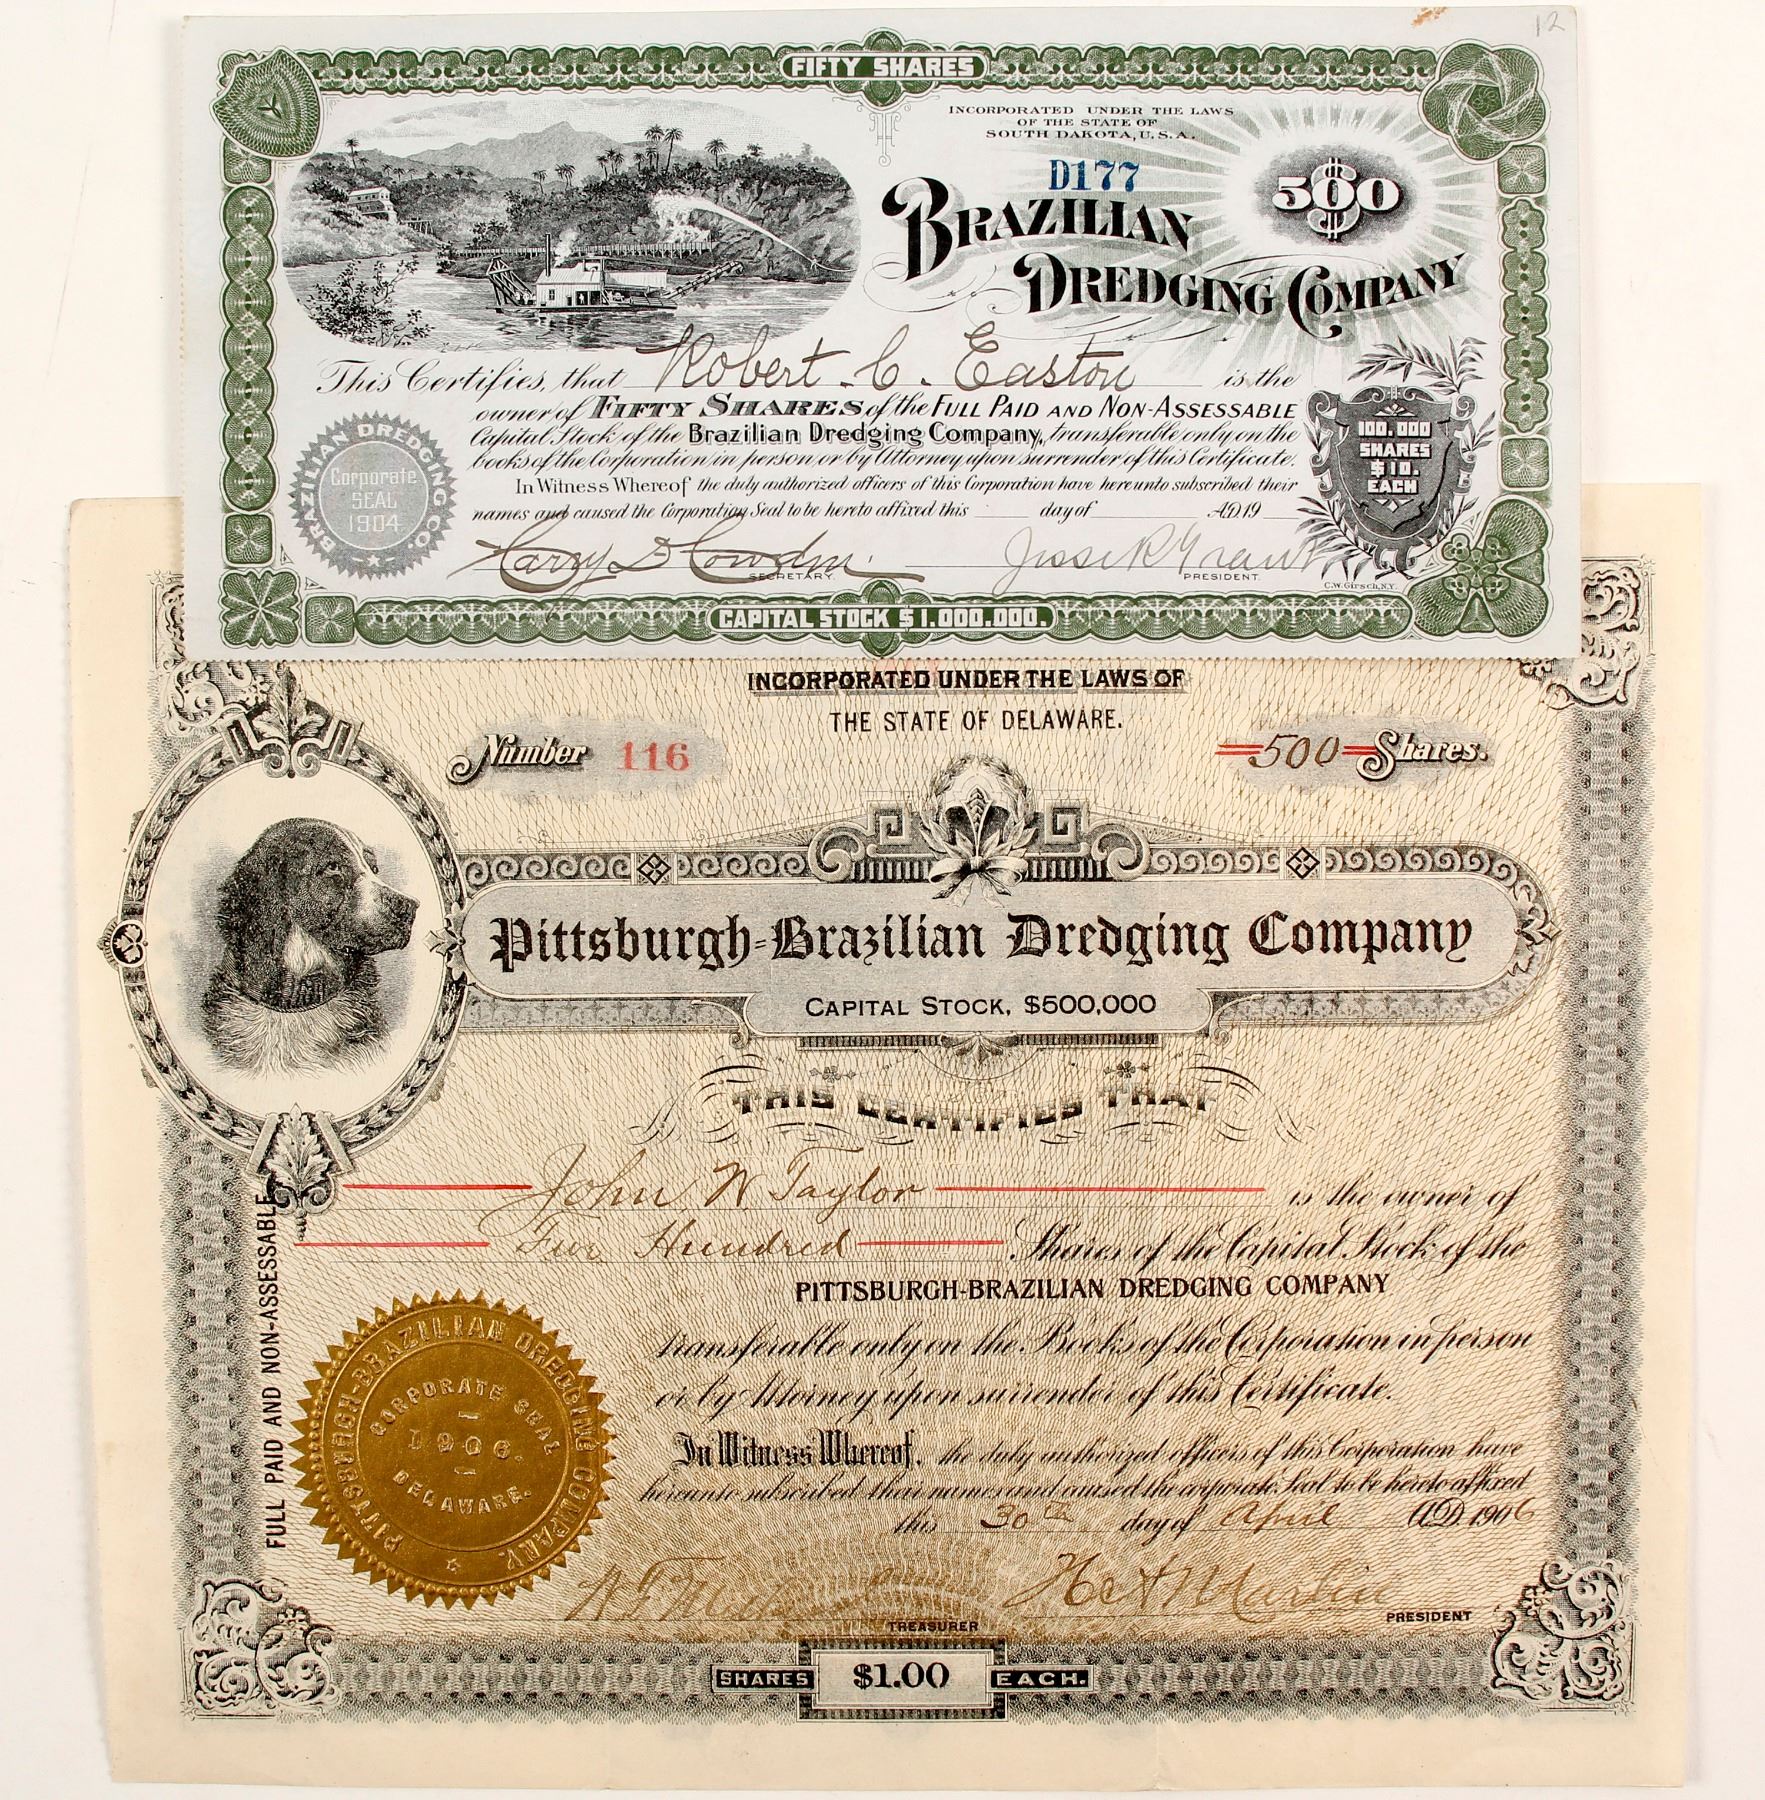 12
FIFTY SHARES
INCORPORATED UNDER THE LAWS
OF THE STATE OF
SOUTH DAKOTA, U.S.A.
D177
$500
BRAZILIAN
DREDGING COMPANY
This Certifies, that Robert C. Easton is the
owner of FIFTY SHARES of the FULL PAID AND NON-ASSESSABLE
Capital Stock of the Brazilian Dredging Company, transferable only on the
books of the Corporation in person or by Attorney upon surrender of this Certificate.
In Witness Whereof the duly authorized officers of this Corporation have hereunto subscribed their
names and caused the Corporation Seal to be hereto affixed this day of A.D. 19
BRAZILIAN DREDGING CO.
Corporate
SEAL
1904
100,000
SHARES
$10.
EACH
Harry S Cowdin
SECRETARY.
Jesse R Grant
PRESIDENT.
C.W. Girsch, N.Y.
CAPITAL STOCK $1,000,000.
INCORPORATED UNDER THE LAWS OF
THE STATE OF DELAWARE.
Number 116
500 Shares.
Pittsburgh-Brazilian Dredging Company
CAPITAL STOCK, $500,000
THIS CERTIFIES THAT
John W. Taylor is the owner of
Five Hundred Shares of the Capital Stock of the
PITTSBURGH-BRAZILIAN DREDGING COMPANY
transferable only on the Books of the Corporation in person
or by Attorney upon surrender of this Certificate.
In Witness Whereof, the duly authorized officers of this Corporation have
hereunto subscribed their names and caused the corporate Seal to be hereto affixed
this 30th day of April A.D. 1906
FULL PAID AND NON-ASSESSABLE
PITTSBURGH-BRAZILIAN DREDGING COMPANY.
CORPORATE SEAL
1906.
DELAWARE.
TREASURER
Martin
PRESIDENT
SHARES $1.00 EACH.